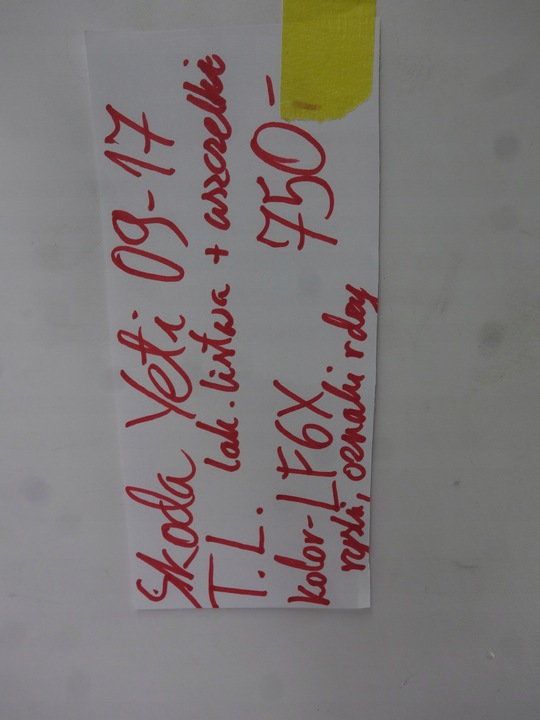 Skoda Yeti 09-17
T.L. lak. listwa + uszczelki
kolor-LF6X 750-
ryski, oznaki rdzy